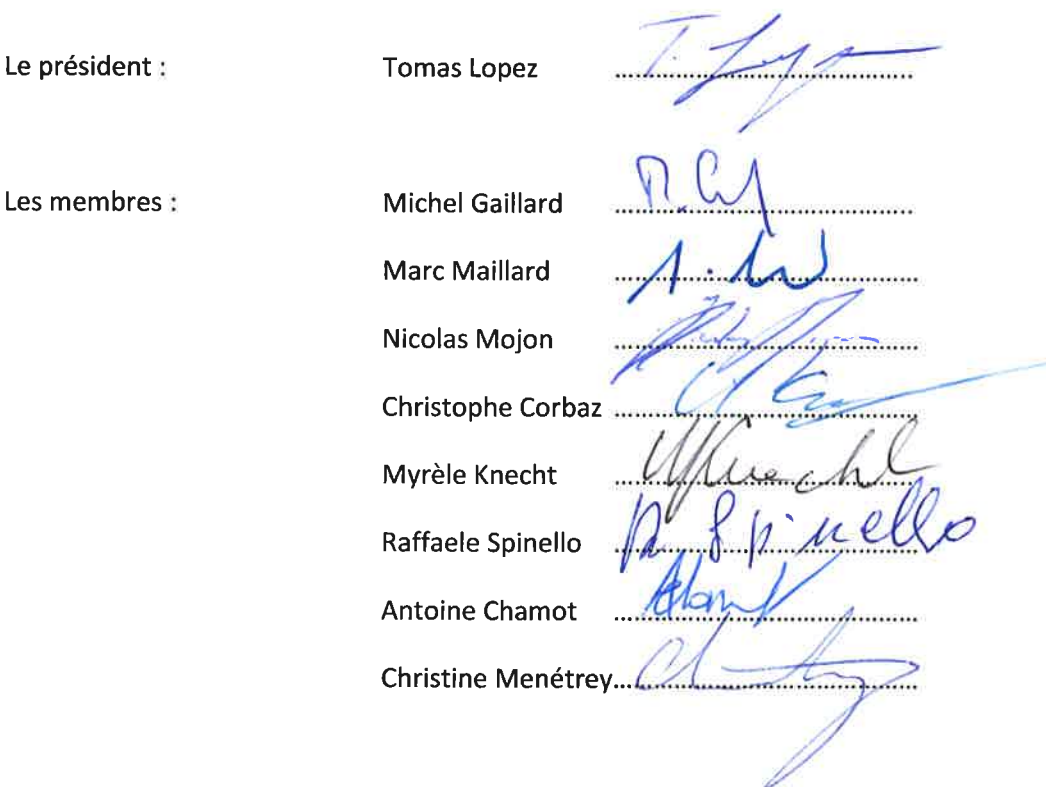 Le président : Tomas Lopez T. Lopez
Les membres : Michel Gaillard
Marc Maillard
Nicolas Mojon
Christophe Corbaz
Myrèle Knecht MKnecht
Raffaele Spinello R. Spinello
Antoine Chamot
Christine Menétrey